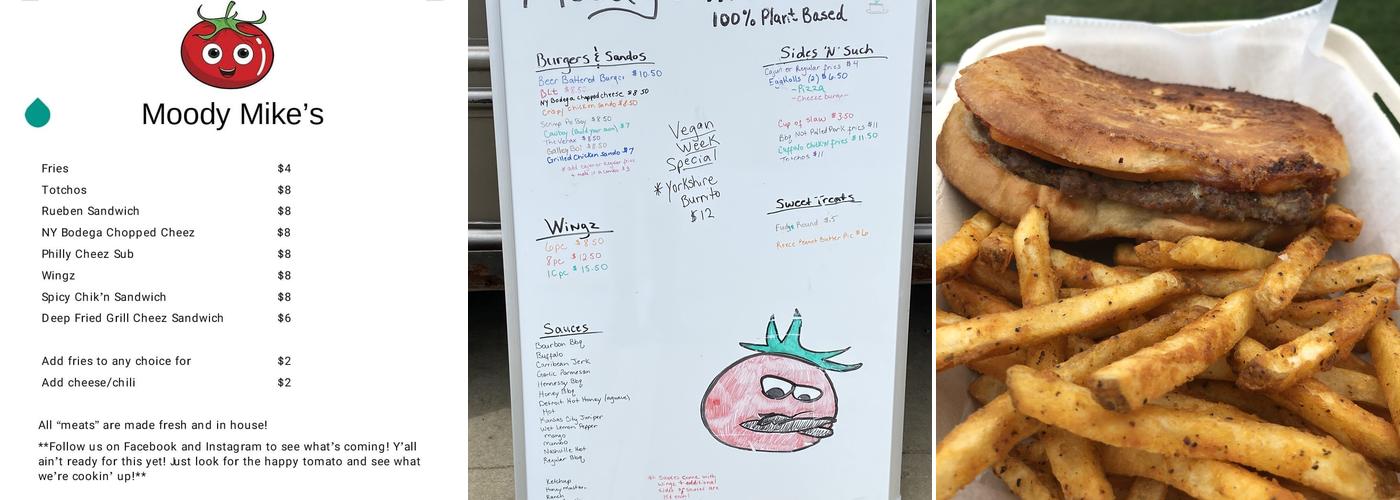 Moody Mike's
Fries $4
Totchos $8
Rueben Sandwich $8
NY Bodega Chopped Cheez $8
Philly Cheez Sub $8
Wingz $8
Spicy Chik'n Sandwich $8
Deep Fried Grill Cheez Sandwich $6
Add fries to any choice for $2
Add cheese/chili $2
All “meats” are made fresh and in house!
**Follow us on Facebook and Instagram to see what's coming! Y'all
ain't ready for this yet! Just look for the happy tomato and see what
we're cookin' up!**
100% Plant Based
Burgers & Sandos
Beer Battered Burger $10.50
BLt $8.50
NY Bodega chopped cheese $8.50
Crispy Chicken Sando $8.50
Scrimp Po Boy $8.50
Cowboy (Build your own) $7
$8.50
$8.50
Grilled Chicken Sando $7
* add cajun or Regular fries
+ make it a combo $3
Vegan
Week
Special
* Yorkshire
Burrito
$12
Sides 'N' Such
Cajun or Regular fries $4
EggRolls (2) $6.50
-Pizza
-Cheezeburger
Cup of Slaw $3.50
BBQ Not Pulled Pork fries $11
Buffalo Chik'n fries $11.50
Totchos $11
Sweet Treats
Fudge Round $5
Reece Peanut Butter Pie $6
Wingz
6pc $8.50
8pc $12.50
10pc $15.50
Sauces
Bourbon Bbq
Buffalo
Carribean Jerk
Garlic Parmesan
Hennessy Bbq
Honey Bbq
Detroit Hot Honey (agave)
Hot
Kansas City
Wet Lemon Pepper
Mango
Nashville Hot
Regular Bbq
Ketchup
Honey Mustard
Ranch
Sauces come with
wings + additional
sides of sauces are